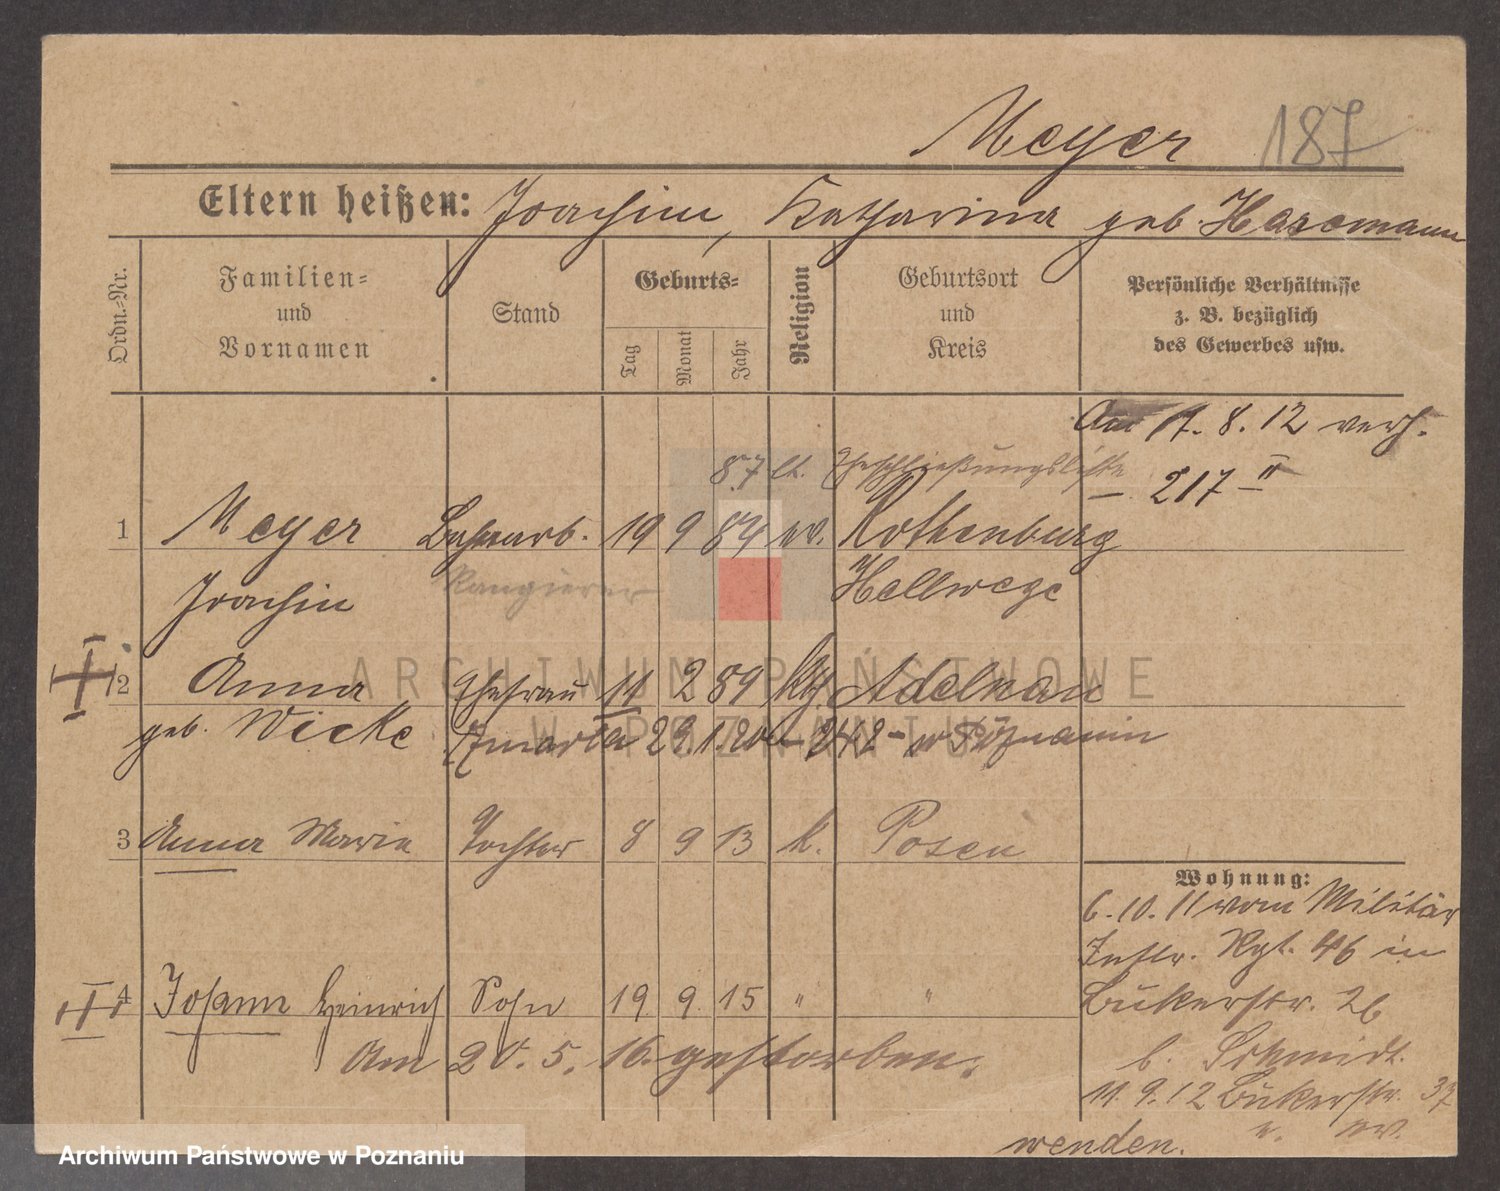 Meyer 187
Eltern heißen: Joachim, Katharina geb. Hassmann
Ordn.-Nr.
Familien-
und
Vornamen
Stand
Geburts-
Tag
Monat
Jahr
Religion
Geburtsort
und
Kreis
Persönliche Verhältnisse
z. B. bezüglich
des Gewerbes usw.
Am 17. 8. 12 verh.
87 lt. Eheschließungsliste
217 II
1 Meyer Bahnarb. 19 9 84 ev. Rothenburg
Joachim Rangierer Hellwege
2 Anna Ehefrau 11 2 89 kth. Adelnau
geb. Wicke Zmarła 29.1.20 - 242 - w Poznaniu
3 Anna Marie Tochter 8 9 13 k. Posen
Wohnung:
6. 10. 11 vom Militär
Inftr. Rgt. 46 in
4 Johann Heinrich Sohn 19 9. 15 " "
Bukerstr. 26
Am 20. 5. 16. gestorben.
b. Schmidt.
11. 9. 12 Bukerstr. 37
wenden.
ARCHIWUM PAŃSTWOWE
W POZNANIU
Archiwum Państwowe w Poznaniu